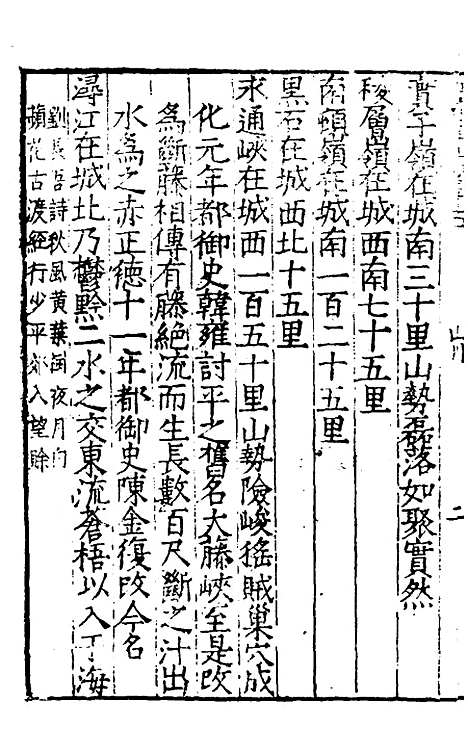 實子嶺在城南三十里山勢磊落如聚實然
稜層嶺在城西南七十五里
南頓嶺在城南一百二十五里
黑石在城西北十五里
求通峽在城西一百五十里山勢險峻猺賊巢穴成
化元年都御史韓雍討平之舊名大藤峽至是改
爲斷藤相傳有藤絕流而生長數百尺斷之汁出
水爲之赤正德十一年都御史陳金復改今名
潯江在城北乃鬱黔二水之交東流蒼梧以入于海
劉長吾詩秋風黃葉
夜月白
蘋花古渡經行少平郊入望賒
山川
二